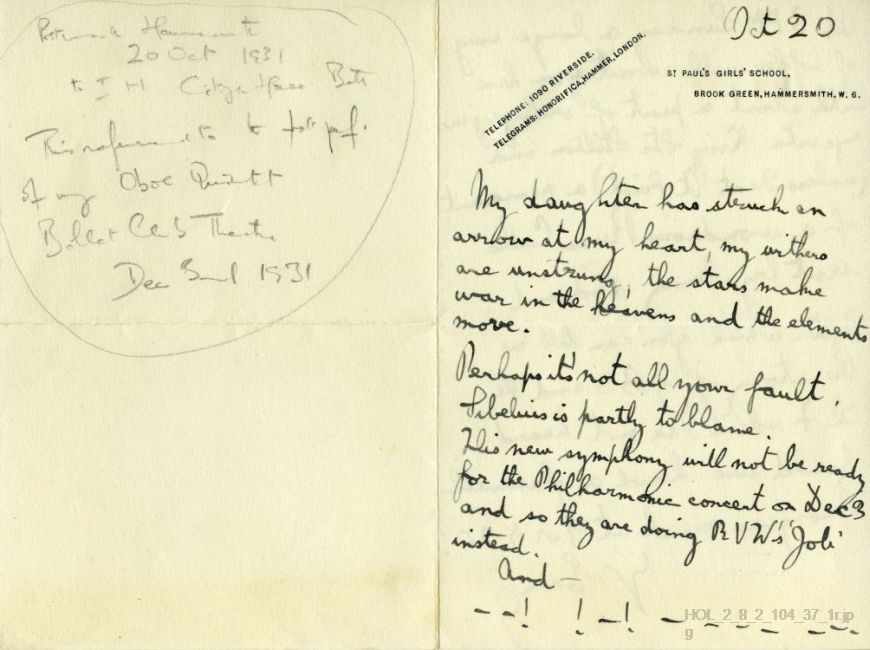 Postmark Hammersmith
20 Oct 1931
to I H
This
of my Oboe Quintet
Ballet Club Theatre
Dec 3rd 1931
Oct 20
TELEPHONE: 1090 RIVERSIDE.
TELEGRAMS: HONORIFICA, HAMMER, LONDON.
ST PAUL'S GIRLS' SCHOOL,
BROOK GREEN, HAMMERSMITH, W. 6.
My daughter has struck an
arrow at my heart, my withers
are unstrung, the stars make
war in the heavens and the elements
move.
Perhaps it's not all your fault.
Sibelius is partly to blame.
His new symphony will not be ready
for the Philharmonic concert on Dec 3
and so they are doing RVW's 'Job'
instead.
And —
— —! ! —! — — — — — — —
HOL_2_8_2_104_37_1r.jp
g